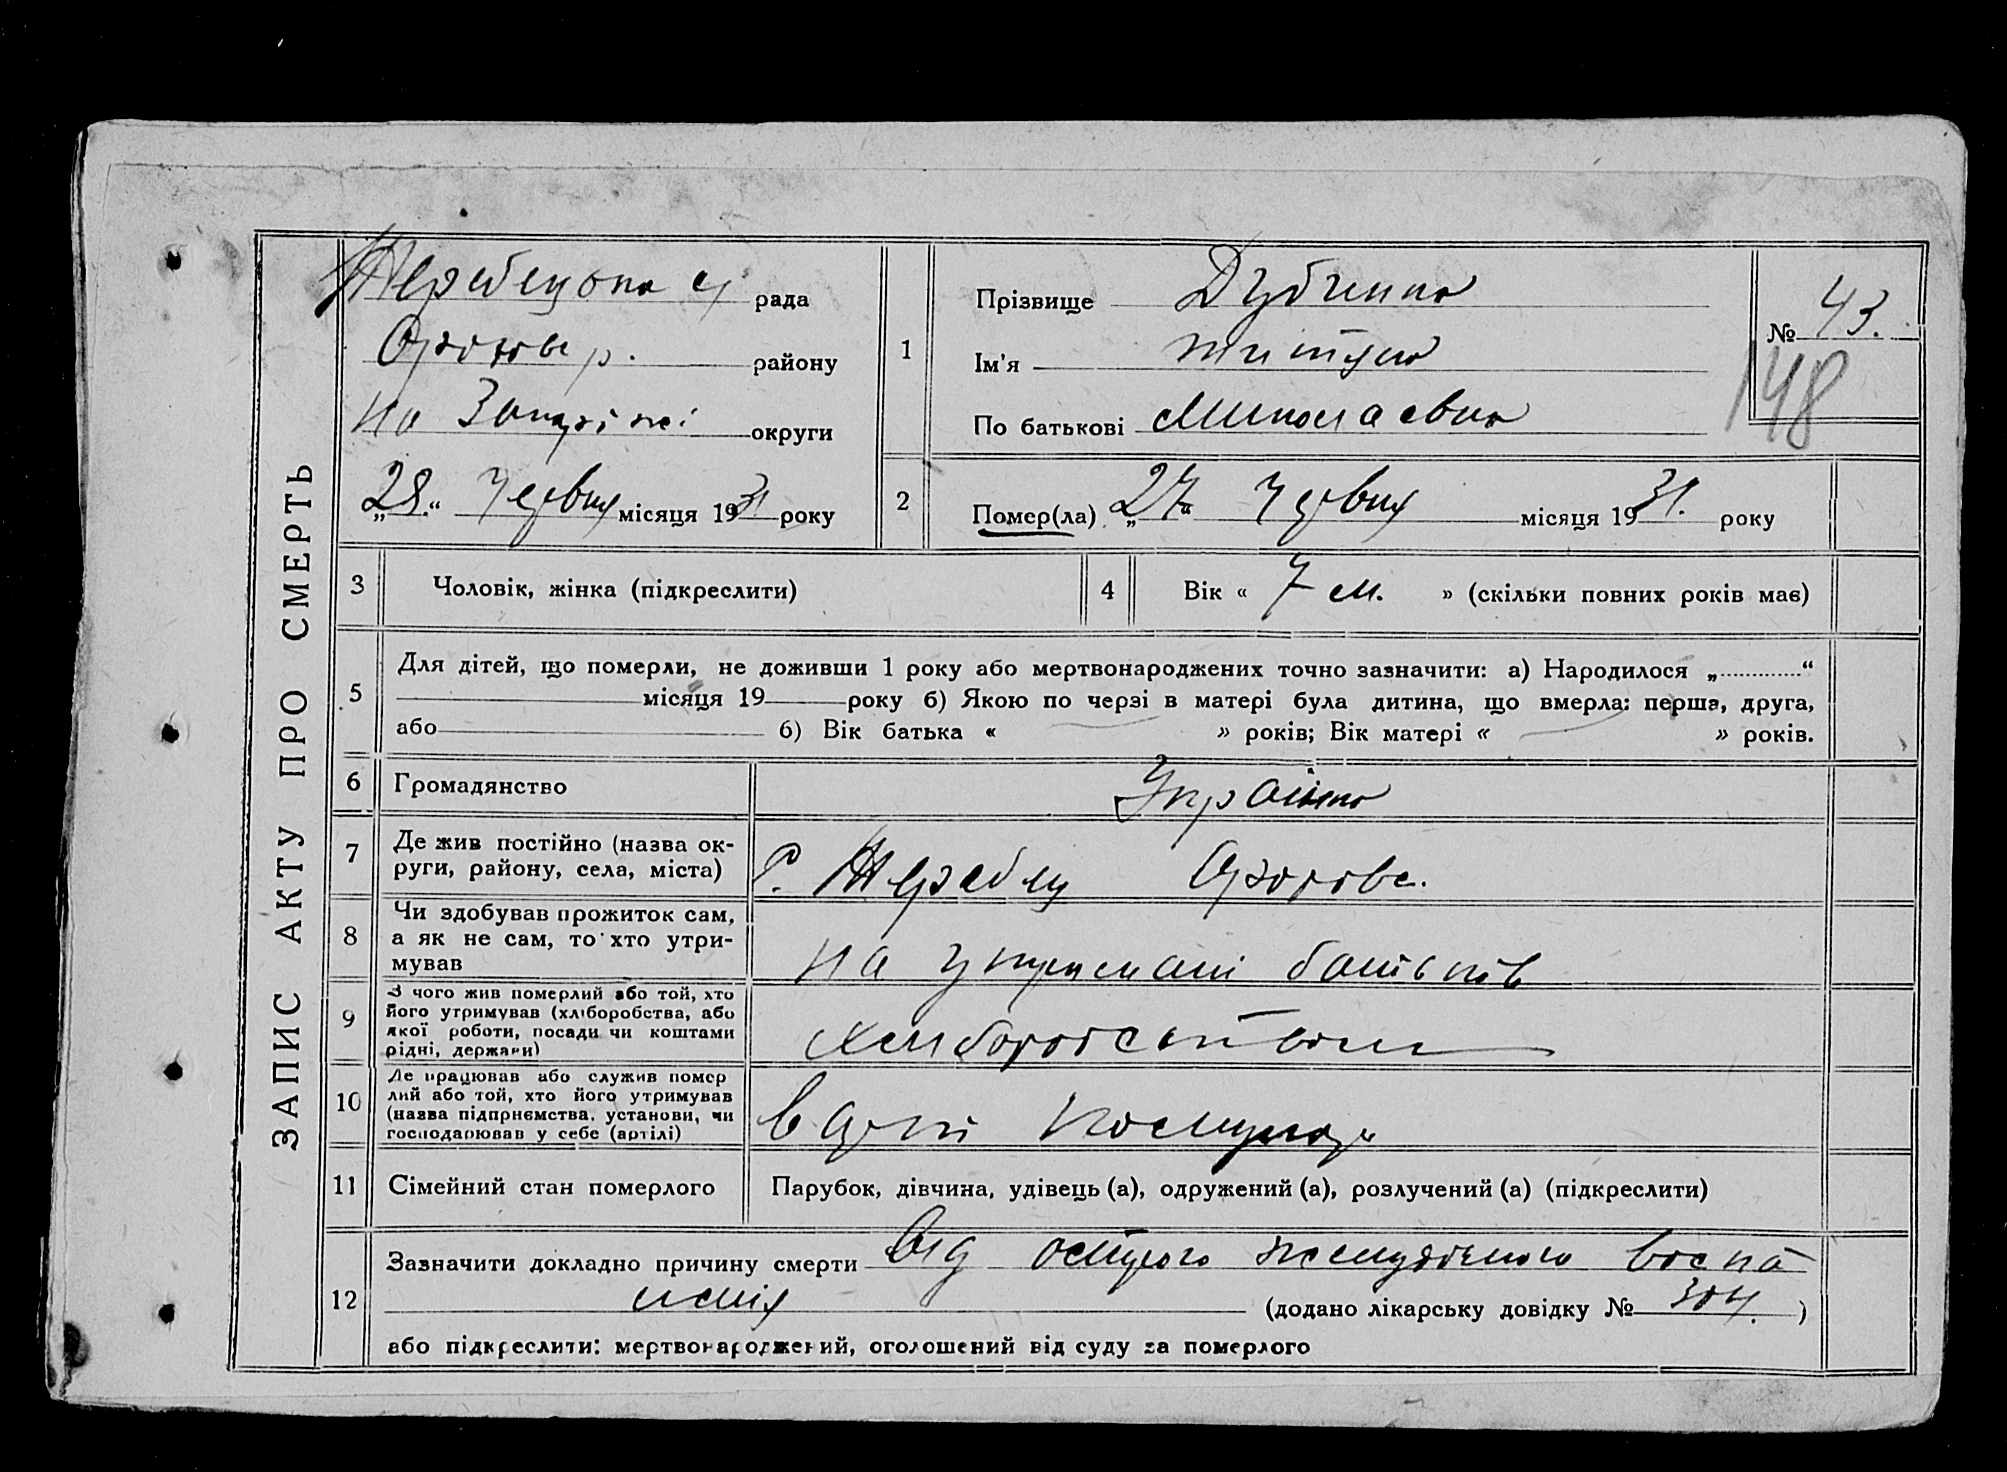 ЗАПИС АКТУ ПРО СМЕРТЬ
Жеребецька с/ рада
Оріхівськ р. району
на Запоріжжі округи
„28“ Червня місяця 1931 року
1
Прізвище Дубинна
Ім'я
По батькові Миколаевна
№ 43.
148
2
Помер(ла) „27“ Червня місяця 1931. року
3 Чоловік, жінка (підкреслити)
4 Вік « 7 м. » (скільки повних років має)
5
Для дітей, що померли, не доживши 1 року або мертвонароджених точно зазначити: а) Народилося „ “
місяця 19 року б) Якою по черзі в матері була дитина, що вмерла: перша, друга,
або б) Вік батька « » років; Вік матері « » років.
6 Громадянство
Україна
7 Де жив постійно (назва ок-
руги, району, села, міста)
с. Жеребец
8 Чи здобував прожиток сам,
а як не сам, то хто утри-
мував
на утримані батьків
9 З чого жив померлий або той, хто
його утримував (хліборобства, або
якої роботи, посади чи коштами
рідні, держави)
хлиборобством
10 Де працював або служив помер
лий або той, хто його утримував
(назва підприємства, установи, чи
господарював у себе (артілі)
в арт
11 Сімейний стан померлого
Парубок, дівчина, удівець (а), одружений (а), розлучений (а) (підкреслити)
12
Зазначити докладно причину смерти Від острого желудочного воспа
ления (додано лікарську довідку № 304.)
або підкреслити: мертвонароджений, оголошений від суду за померлого